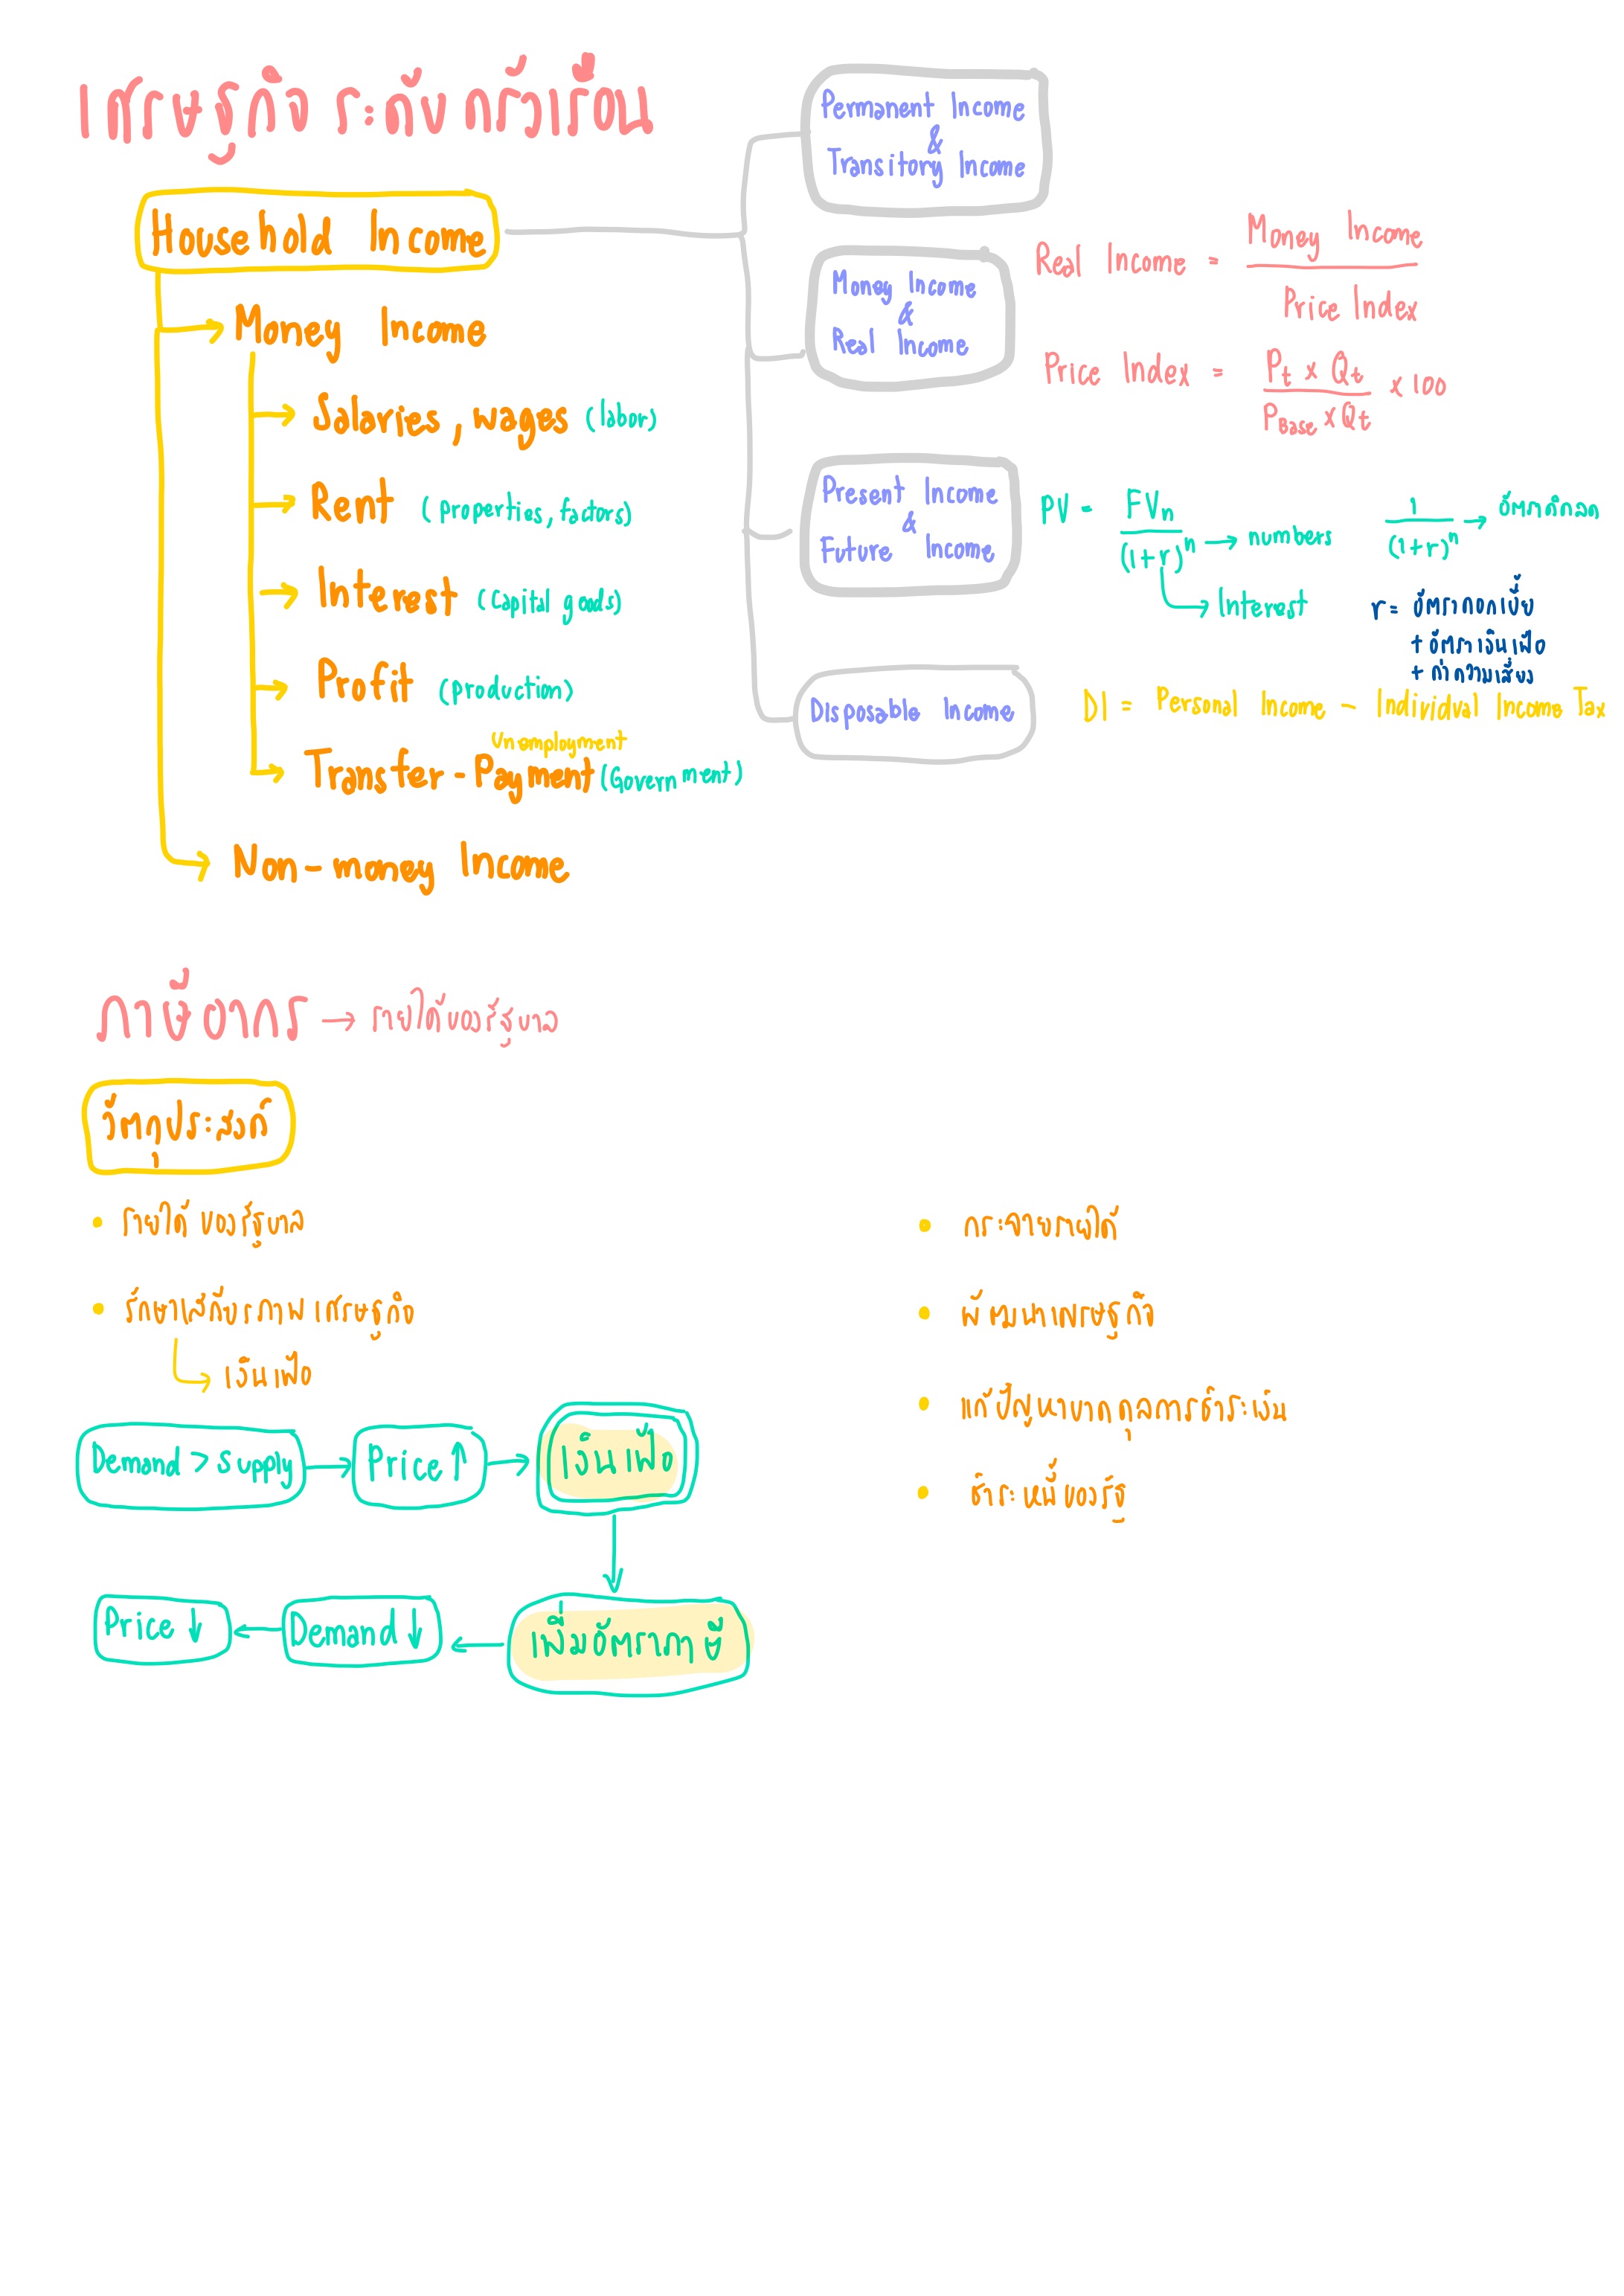 เศรษฐกิจ ระดับ ครัวเรือน
Household Income
Money Income
Salaries, wages (labor)
Rent (properties, factors)
Interest (Capital goods)
Profit (production)
Unemployment
Transfer-Payment (Government)
Non-money Income
Permanent Income
&
Transitory Income
Money Income
&
Real Income
Real Income = Money Income / Price Index
Price Index = Pt x Qt / PBase x Qt x 100
Present Income
&
Future Income
PV = FVn / (1+r)^n → numbers
→ Interest
1 / (1+r)^n → อัตราคิดลด
r = อัตราดอกเบี้ย
+ อัตราเงินเฟ้อ
+ ค่าความเสี่ยง
Disposable Income
DI = Personal Income - Individual Income Tax
ภาษีอากร → รายได้ของรัฐบาล
วัตถุประสงค์
• รายได้ของรัฐบาล
• รักษาเสถียรภาพเศรษฐกิจ
→ เงินเฟ้อ
Demand > supply → Price ↑ → เงินเฟ้อ
เพิ่มอัตราภาษี
Demand ↓
Price ↓
• กระจายรายได้
• พัฒนาเศรษฐกิจ
• แก้ปัญหาขาดดุลการชำระเงิน
• ชำระหนี้ของรัฐ